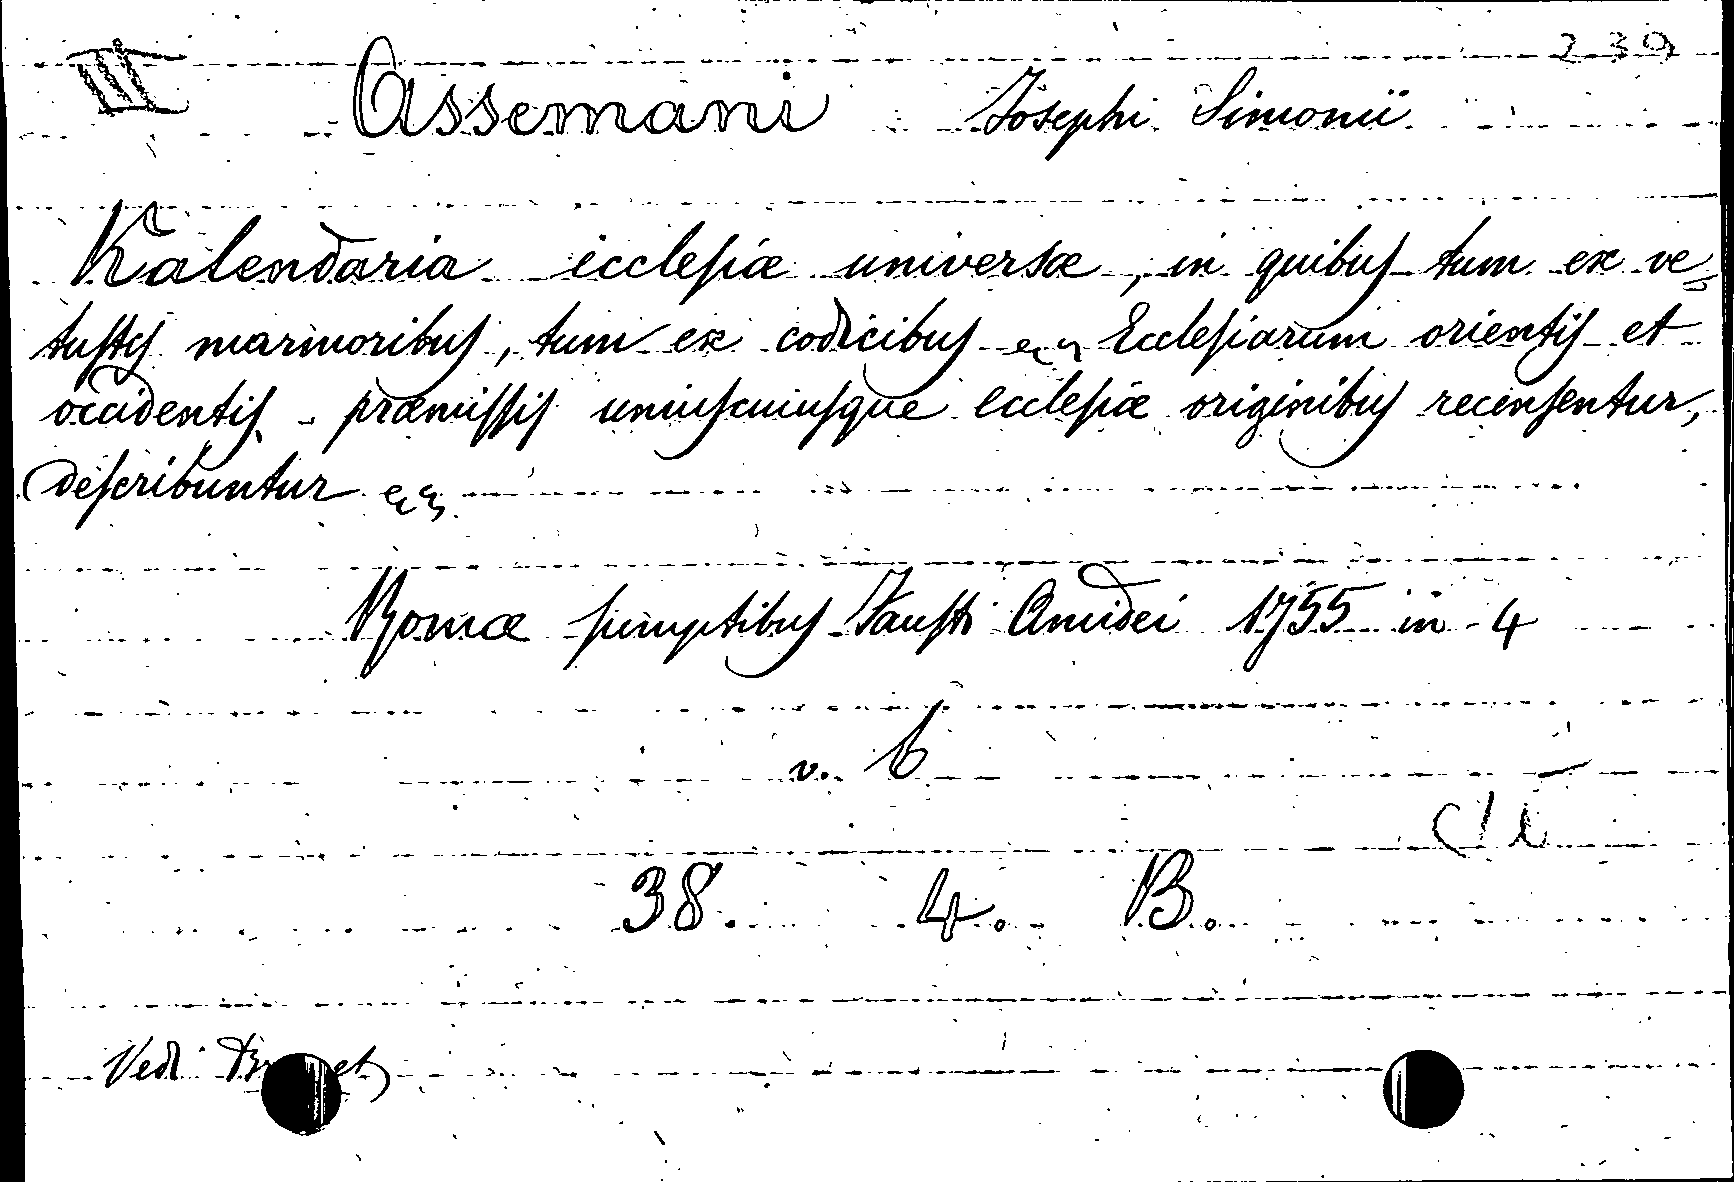 III Assemani Josephi Simonii 239
Kalendaria ecclesiæ universæ, in quibus tum ex ve-
tustis marmoribus, tum ex codicibus Ecclesiarum orientis et
occidentis præmissis uniuscuiusque ecclesiæ originibus recensentur,
describuntur
Romæ sumptibus Fausti Amidei 1755 in 4
v. 6
38. 4. B.
Vedi